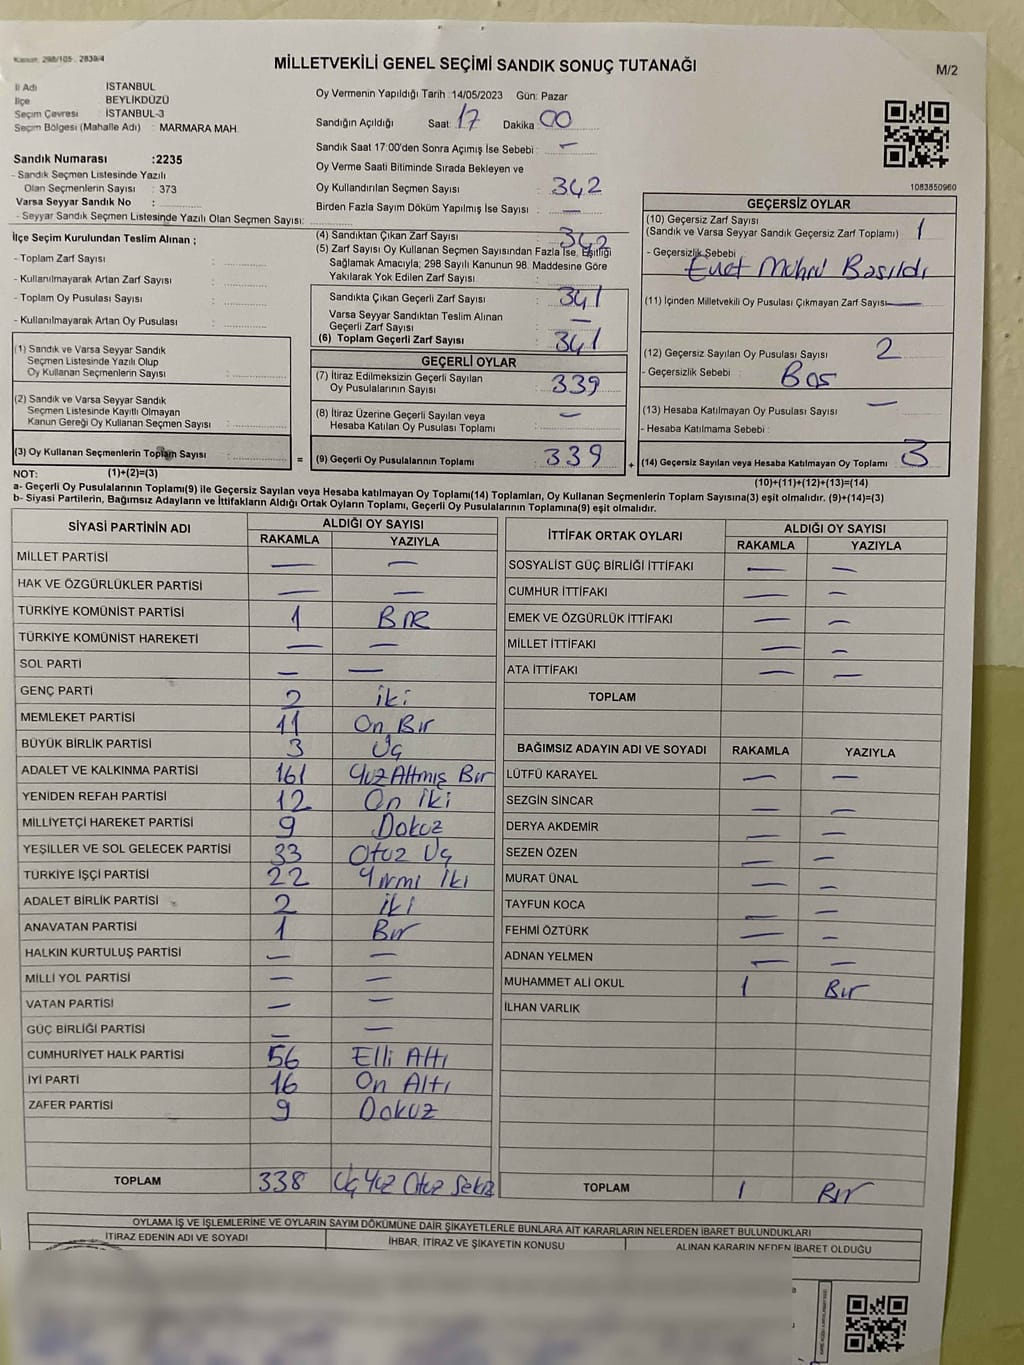 Kanun: 298/105 . 2839/4
MİLLETVEKİLİ GENEL SEÇİMİ SANDIK SONUÇ TUTANAĞI
M/2
İl Adı İSTANBUL
İlçe BEYLİKDÜZÜ
Seçim Çevresi : İSTANBUL-3
Seçim Bölgesi (Mahalle Adı) : MARMARA MAH.
Sandık Numarası :2235
- Sandık Seçmen Listesinde Yazılı
Olan Seçmenlerin Sayısı : 373
Varsa Seyyar Sandık No :
- Seyyar Sandık Seçmen Listesinde Yazılı Olan Seçmen Sayısı:
Oy Vermenin Yapıldığı Tarih :14/05/2023 Gün: Pazar
Sandığın Açıldığı Saat: 17 Dakika 00
Sandık Saat 17:00'den Sonra Açımış İse Sebebi : —
Oy Verme Saati Bitiminde Sırada Bekleyen ve
Oy Kullandırılan Seçmen Sayısı : 342
Birden Fazla Sayım Döküm Yapılmış İse Sayısı : —
1083850960
İlçe Seçim Kurulundan Teslim Alınan ;
- Toplam Zarf Sayısı :
- Kullanılmayarak Artan Zarf Sayısı :
- Toplam Oy Pusulası Sayısı :
- Kullanılmayarak Artan Oy Pusulası :
(1) Sandık ve Varsa Seyyar Sandık
Seçmen Listesinde Yazılı Olup
Oy Kullanan Seçmenlerin Sayısı :
(2) Sandık ve Varsa Seyyar Sandık
Seçmen Listesinde Kayıtlı Olmayan
Kanun Gereği Oy Kullanan Seçmen Sayısı :
(3) Oy Kullanan Seçmenlerin Toplam Sayısı :
(4) Sandıktan Çıkan Zarf Sayısı : 342
(5) Zarf Sayısı Oy Kullanan Seçmen Sayısından Fazla İse, Eşitliği
Sağlamak Amacıyla; 298 Sayılı Kanunun 98. Maddesine Göre
Yakılarak Yok Edilen Zarf Sayısı :
Sandıkta Çıkan Geçerli Zarf Sayısı : 341
Varsa Seyyar Sandıktan Teslim Alınan
Geçerli Zarf Sayısı : —
(6) Toplam Geçerli Zarf Sayısı : 341
GEÇERLİ OYLAR
(7) İtiraz Edilmeksizin Geçerli Sayılan
Oy Pusulalarının Sayısı : 339
(8) İtiraz Üzerine Geçerli Sayılan veya
Hesaba Katılan Oy Pusulası Toplamı : —
= (9) Geçerli Oy Pusulalarının Toplamı : 339
GEÇERSİZ OYLAR
(10) Geçersiz Zarf Sayısı
(Sandık ve Varsa Seyyar Sandık Geçersiz Zarf Toplamı) : 1
- Geçersizlik Sebebi
Evet Mührü Basıldı
(11) İçinden Milletvekili Oy Pusulası Çıkmayan Zarf Sayısı —
(12) Geçersiz Sayılan Oy Pusulası Sayısı : 2
- Geçersizlik Sebebi : Boş
(13) Hesaba Katılmayan Oy Pusulası Sayısı : —
- Hesaba Katılmama Sebebi :
+ (14) Geçersiz Sayılan veya Hesaba Katılmayan Oy Toplamı : 3
NOT: (1)+(2)=(3)
(10)+(11)+(12)+(13)=(14)
a- Geçerli Oy Pusulalarının Toplamı(9) ile Geçersiz Sayılan veya Hesaba katılmayan Oy Toplamı(14) Toplamları, Oy Kullanan Seçmenlerin Toplam Sayısına(3) eşit olmalıdır. (9)+(14)=(3)
b- Siyasi Partilerin, Bağımsız Adayların ve İttifakların Aldığı Ortak Oyların Toplamı, Geçerli Oy Pusulalarının Toplamına(9) eşit olmalıdır.
SİYASİ PARTİNİN ADI ALDIĞI OY SAYISI
RAKAMLA YAZIYLA
MİLLET PARTİSİ — —
HAK VE ÖZGÜRLÜKLER PARTİSİ — —
TÜRKİYE KOMÜNİST PARTİSİ 1 BİR
TÜRKİYE KOMÜNİST HAREKETİ — —
SOL PARTİ — —
GENÇ PARTİ 2 iki
MEMLEKET PARTİSİ 11 On Bir
BÜYÜK BİRLİK PARTİSİ 3 Üç
ADALET VE KALKINMA PARTİSİ 161 Yüz Altmış Bir
YENİDEN REFAH PARTİSİ 12 On iki
MİLLİYETÇİ HAREKET PARTİSİ 9 Dokuz
YEŞİLLER VE SOL GELECEK PARTİSİ 33 Otuz Üç
TÜRKİYE İŞÇİ PARTİSİ 22 Yirmi İki
ADALET BİRLİK PARTİSİ 2 iki
ANAVATAN PARTİSİ 1 Bir
HALKIN KURTULUŞ PARTİSİ — —
MİLLİ YOL PARTİSİ — —
VATAN PARTİSİ — —
GÜÇ BİRLİĞİ PARTİSİ — —
CUMHURİYET HALK PARTİSİ 56 Elli Altı
İYİ PARTİ 16 On Altı
ZAFER PARTİSİ 9 Dokuz
TOPLAM 338 Üç Yüz Otuz Sekiz
İTTİFAK ORTAK OYLARI ALDIĞI OY SAYISI
RAKAMLA YAZIYLA
SOSYALİST GÜÇ BİRLİĞİ İTTİFAKI — —
CUMHUR İTTİFAKI — —
EMEK VE ÖZGÜRLÜK İTTİFAKI — —
MİLLET İTTİFAKI — —
ATA İTTİFAKI — —
TOPLAM
BAĞIMSIZ ADAYIN ADI VE SOYADI RAKAMLA YAZIYLA
LÜTFÜ KARAYEL — —
SEZGİN SİNCAR — —
DERYA AKDEMİR — —
SEZEN ÖZEN — —
MURAT ÜNAL — —
TAYFUN KOCA — —
FEHMİ ÖZTÜRK — —
ADNAN YELMEN — —
MUHAMMET ALİ OKUL 1 Bir
İLHAN VARLIK
TOPLAM 1 BİR
OYLAMA İŞ VE İŞLEMLERİNE VE OYLARIN SAYIM DÖKÜMÜNE DAİR ŞİKAYETLERLE BUNLARA AİT KARARLARIN NELERDEN İBARET BULUNDUKLARI
İTİRAZ EDENİN ADI VE SOYADI İHBAR, İTİRAZ VE ŞİKAYETİN KONUSU ALINAN KARARIN NEDEN İBARET OLDUĞU